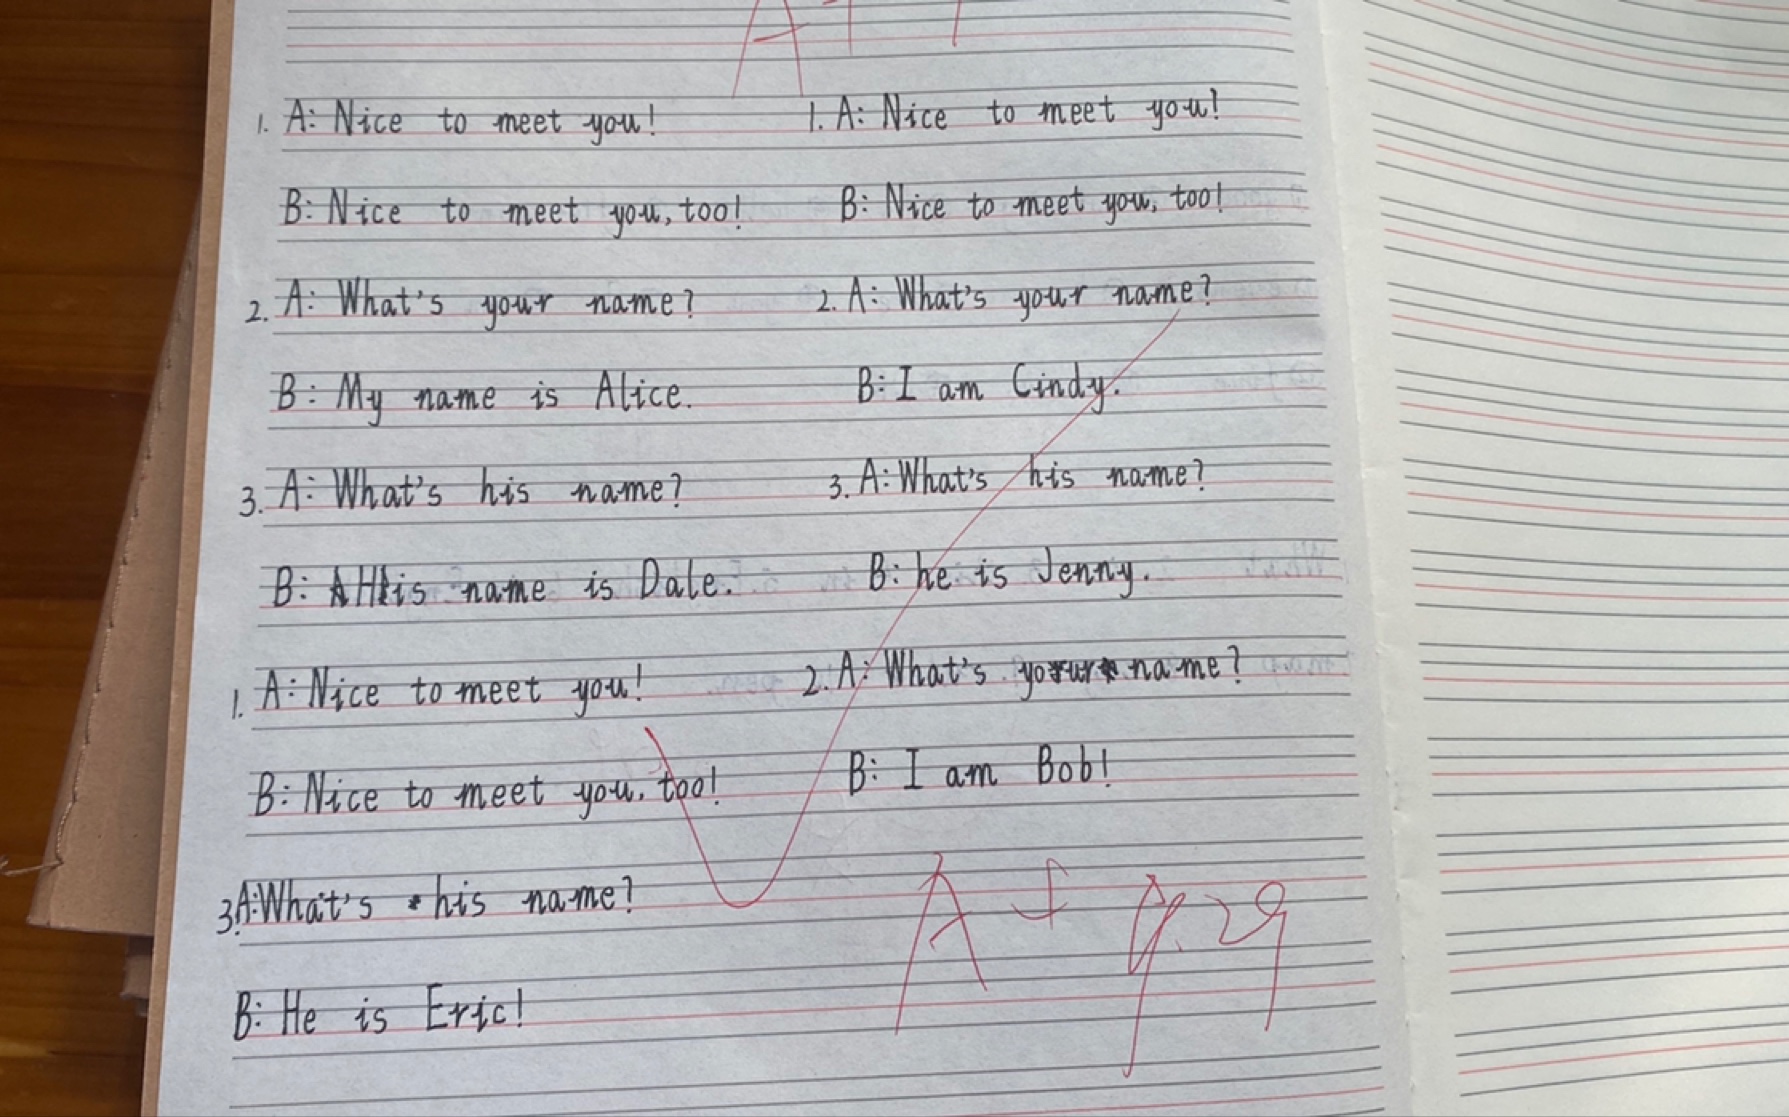 1. A: Nice to meet you!
B: Nice to meet you, too!
2. A: What's your name?
B: My name is Alice.
3. A: What's his name?
B: His name is Dale.
1. A: Nice to meet you!
B: Nice to meet you, too!
2. A: What's your name?
B: I am Cindy.
3. A: What's his name?
B: he is Jenny.
1. A: Nice to meet you!
B: Nice to meet you, too!
2. A: What's your name?
B: I am Bob!
3. A: What's his name?
B: He is Eric!
A+ 9.29